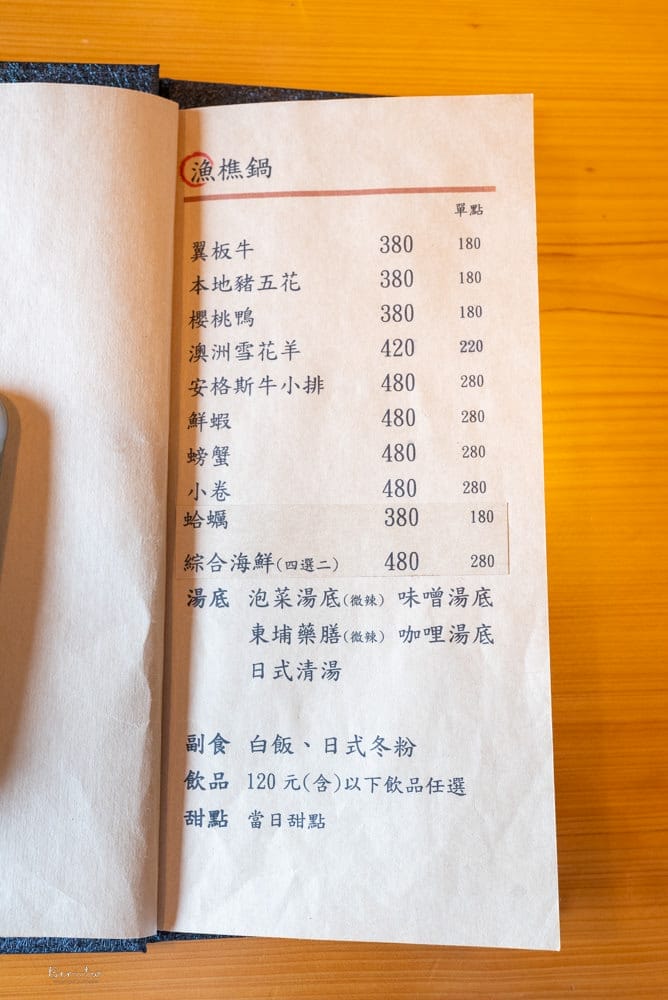 漁樵鍋
單點
翼板牛 380 180
本地豬五花 380 180
櫻桃鴨 380 180
澳洲雪花羊 420 220
安格斯牛小排 480 280
鮮蝦 480 280
螃蟹 480 280
小卷 480 280
蛤蠣 380 180
綜合海鮮(四選二) 480 280
湯底 泡菜湯底(微辣) 味噌湯底
東埔藥膳(微辣) 咖哩湯底
日式清湯
副食 白飯、日式冬粉
飲品 120 元(含)以下飲品任選
甜點 當日甜點